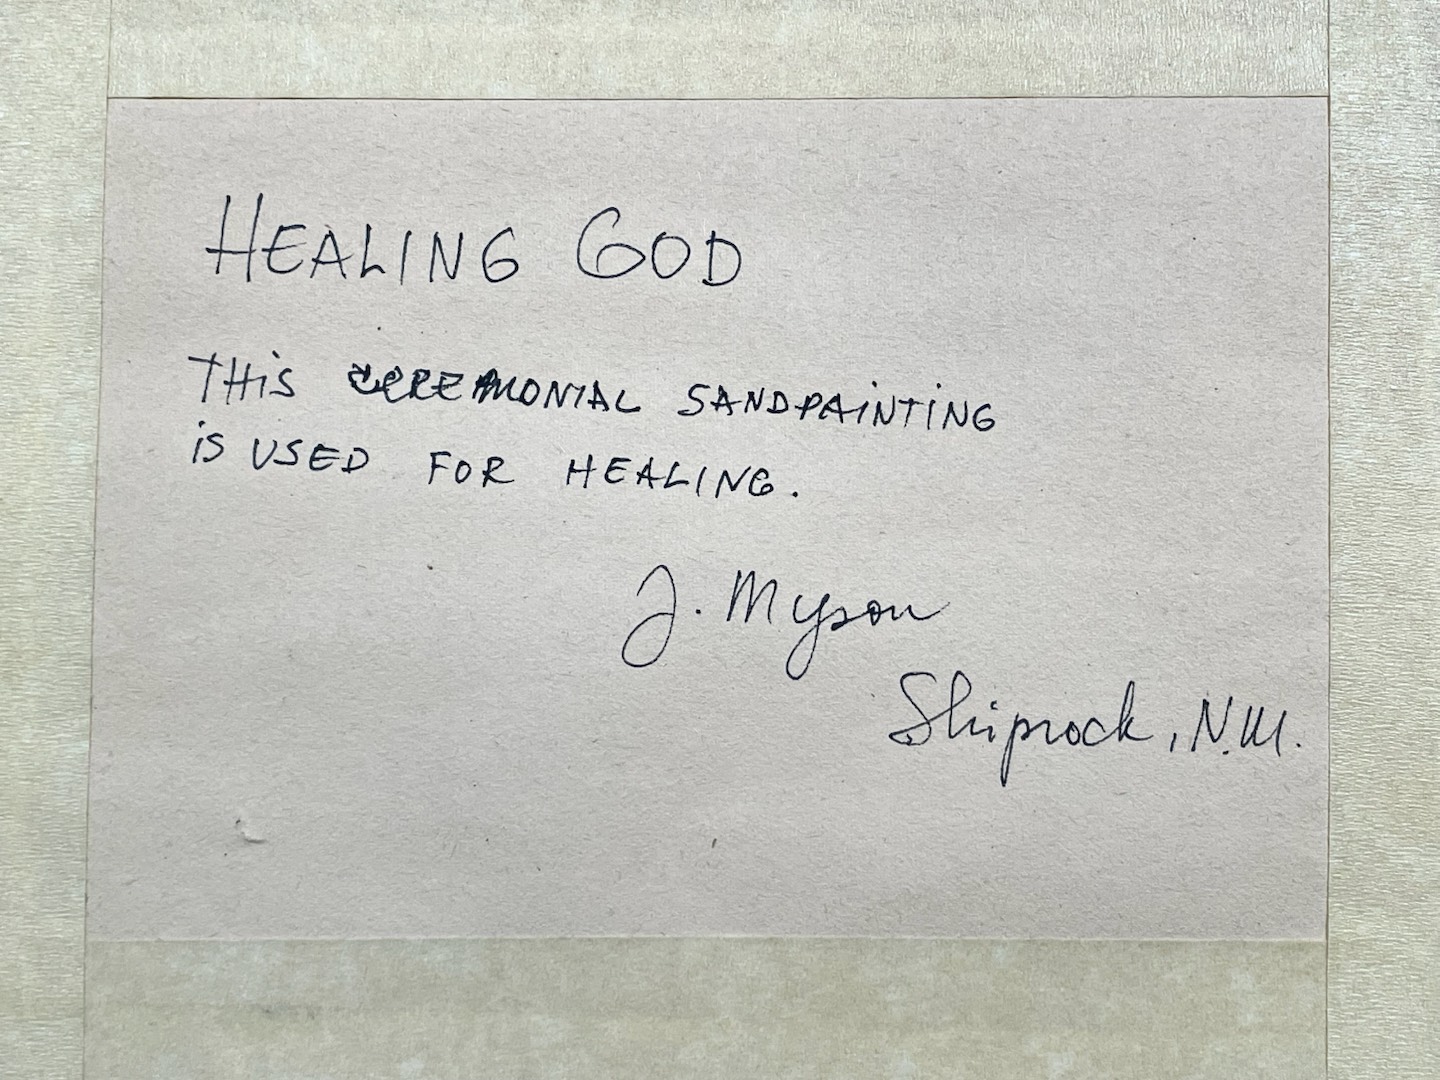 HEALING GOD
THiS CEREMONIAL SANDPAiNTiNG
iS USED FOR HEALING.
J. Myson
Shiprock, N.M.